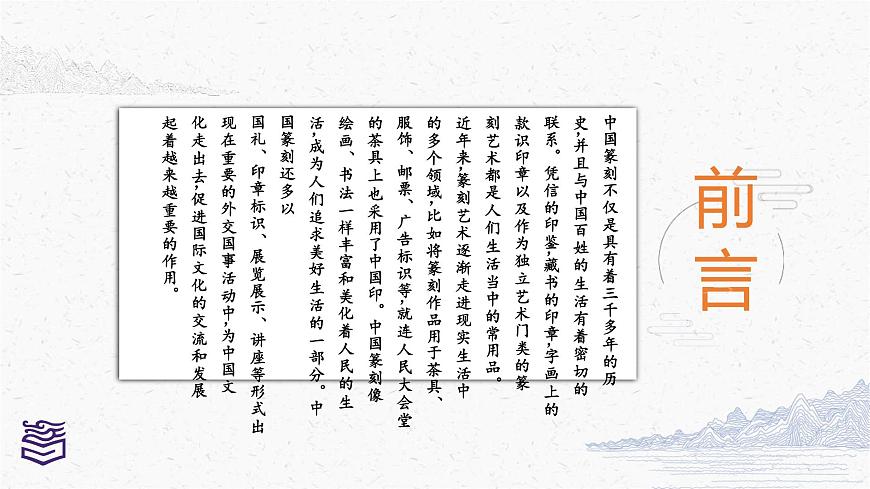 前言
中国篆刻不仅是具有着三千多年的历
史,并且与中国百姓的生活有着密切的
联系。凭信的印鉴,藏书的印章,字画上的
款识印章以及作为独立艺术门类的篆
刻艺术都是人们生活当中的常用品。
近年来,篆刻艺术逐渐走进现实生活中
的多个领域,比如将篆刻作品用于茶具、
服饰、邮票、广告标识等,就连人民大会堂
的茶具上也采用了中国印。中国篆刻像
绘画、书法一样丰富和美化着人民的生
活,成为人们追求美好生活的一部分。中
国篆刻还多以
国礼、印章标识、展览展示、讲座等形式出
现在重要的外交国事活动中,为中国文
化走出去,促进国际文化的交流和发展
起着越来越重要的作用。